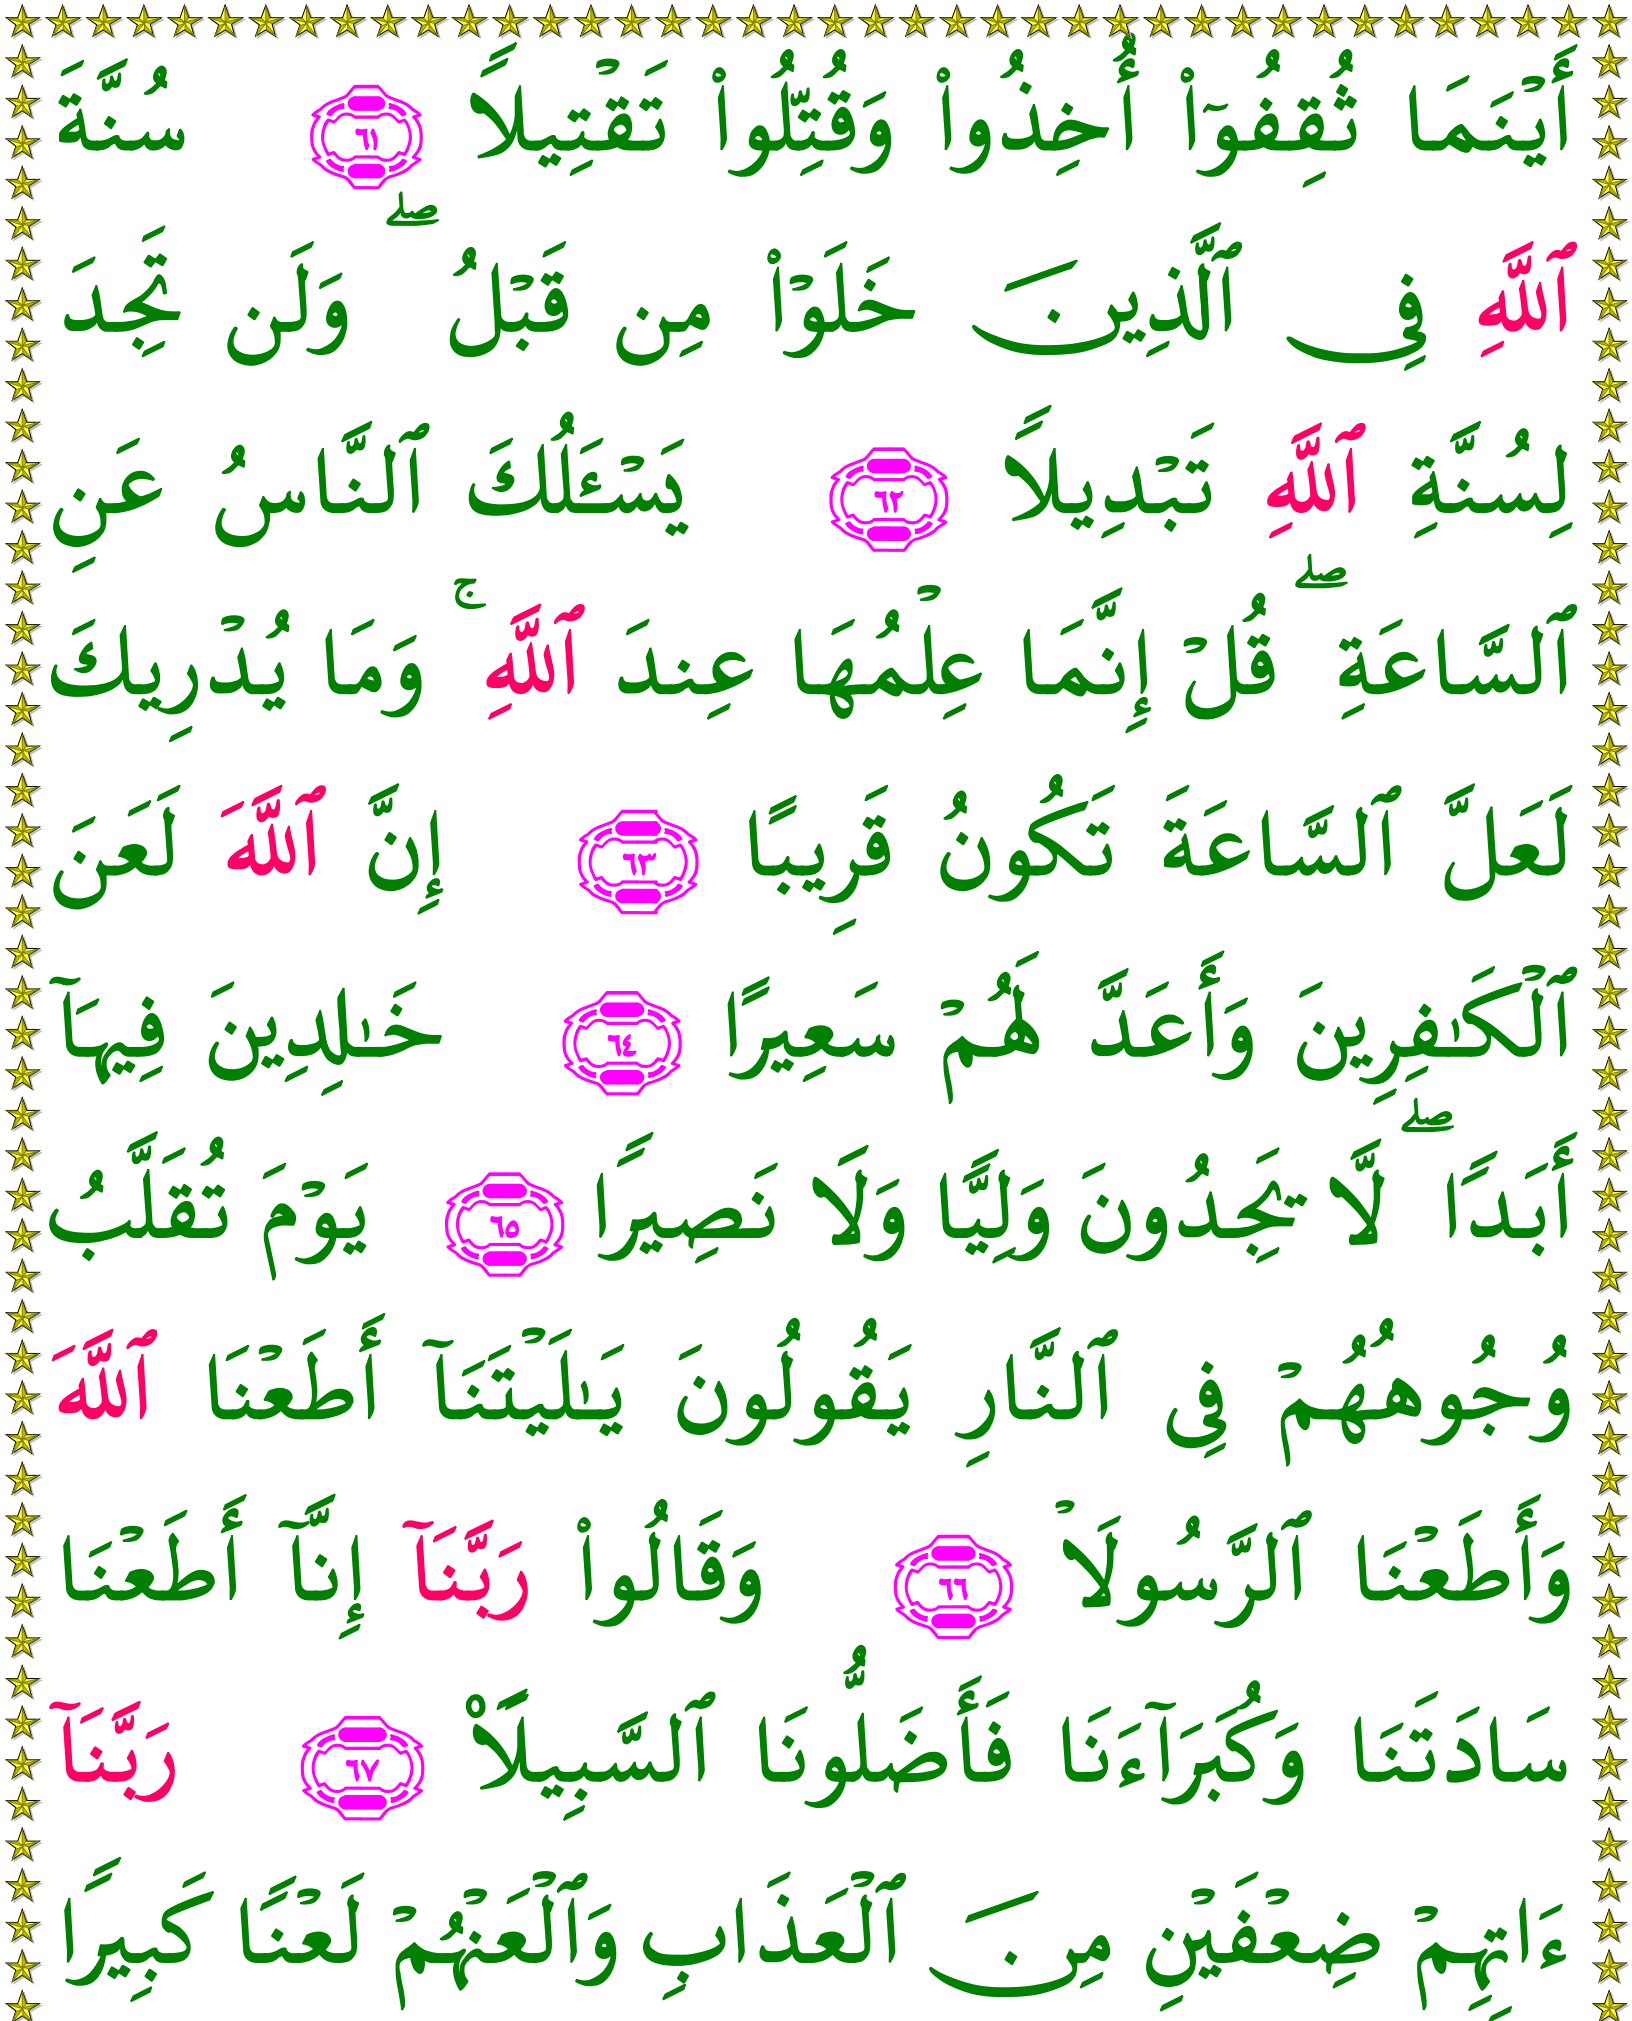 أَيْنَمَا ثُقِفُوٓا۟ أُخِذُوا۟ وَقُتِّلُوا۟ تَقْتِيلًا ٦١ سُنَّةَ
ٱللَّهِ فِى ٱلَّذِينَ خَلَوْا۟ مِن قَبْلُ ۖ وَلَن تَجِدَ
لِسُنَّةِ ٱللَّهِ تَبْدِيلًا ٦٢ يَسْـَٔلُكَ ٱلنَّاسُ عَنِ
ٱلسَّاعَةِ ۖ قُلْ إِنَّمَا عِلْمُهَا عِندَ ٱللَّهِ ۚ وَمَا يُدْرِيكَ
لَعَلَّ ٱلسَّاعَةَ تَكُونُ قَرِيبًا ٦٣ إِنَّ ٱللَّهَ لَعَنَ
ٱلْكَـٰفِرِينَ وَأَعَدَّ لَهُمْ سَعِيرًا ٦٤ خَـٰلِدِينَ فِيهَآ
أَبَدًا ۖ لَّا يَجِدُونَ وَلِيًّا وَلَا نَصِيرًا ٦٥ يَوْمَ تُقَلَّبُ
وُجُوهُهُمْ فِى ٱلنَّارِ يَقُولُونَ يَـٰلَيْتَنَآ أَطَعْنَا ٱللَّهَ
وَأَطَعْنَا ٱلرَّسُولَا۠ ٦٦ وَقَالُوا۟ رَبَّنَآ إِنَّآ أَطَعْنَا
سَادَتَنَا وَكُبَرَآءَنَا فَأَضَلُّونَا ٱلسَّبِيلَا۠ ٦٧ رَبَّنَآ
ءَاتِهِمْ ضِعْفَيْنِ مِنَ ٱلْعَذَابِ وَٱلْعَنْهُمْ لَعْنًا كَبِيرًا